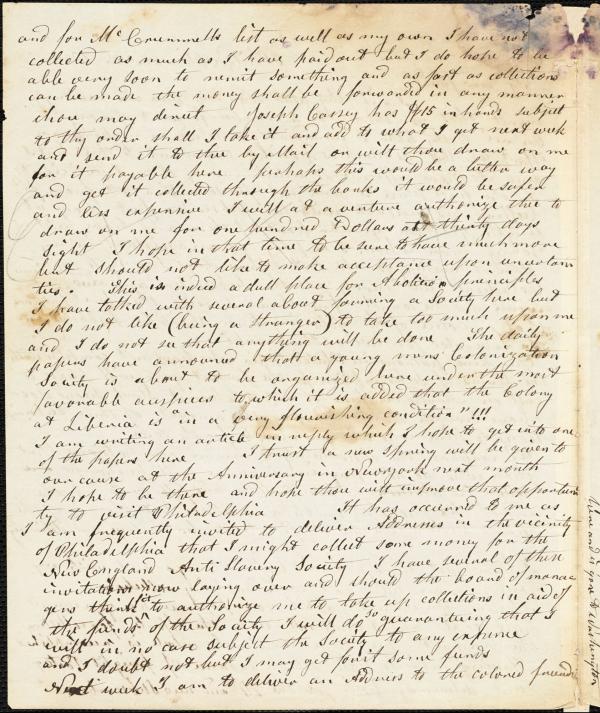 and for Mc Crummells list as well as my own I have not
collected as much as I have paid out but I do hope to be
able very soon to remit something and as fast as collections
can be made the money shall be forwarded in any manner
thou may direct Joseph Cassey has $15 in hands subject
to thy order shall I take it and add to what I get next week
and send it to thee by Mail or wilt thou draw on me
for it payable here perhaps this would be a better way
and get it collected through the banks it would be safer
and less expensive I will at a venture authorize thee to
draw on me for one hundred Dollars at thirty days
sight I hope in that time to be sure to have much more
but should not like to make acceptance upon uncertain
ties. This is indeed a dull place for Abolition principles
I have talked with several about forming a Society here but
I do not like (being a stranger) to take too much upon me
and I do not see that anything will be done The daily
papers have announced that a young mens Colonization
Society is about to be organized here under the most
favorable auspices to which it is added that the Colony
at Liberia is "in a very flourishing condition"!!!
I am writing an article in reply which I hope to get into one
of the papers here I trust a new spring will be given to
our cause at the Anniversary in New york next month
I hope to be there and hope thou wilt improve that opportuni
ty to visit Philadelphia It has occurred to me as
I am frequently invited to deliver Addresses in the vicinity
of Philadelphia that I might collect some money for the
New England Anti Slavery Society I have several of these
invitations now laying over and should the board of mana
gers think fit to authorize me to take up collections in aid of
the funds of the Society I will do so guaranteeing that I
will in no case subject the Society to any expense
and I doubt not but I may get for it some funds
Next week I am to deliver an Address to the colored friends